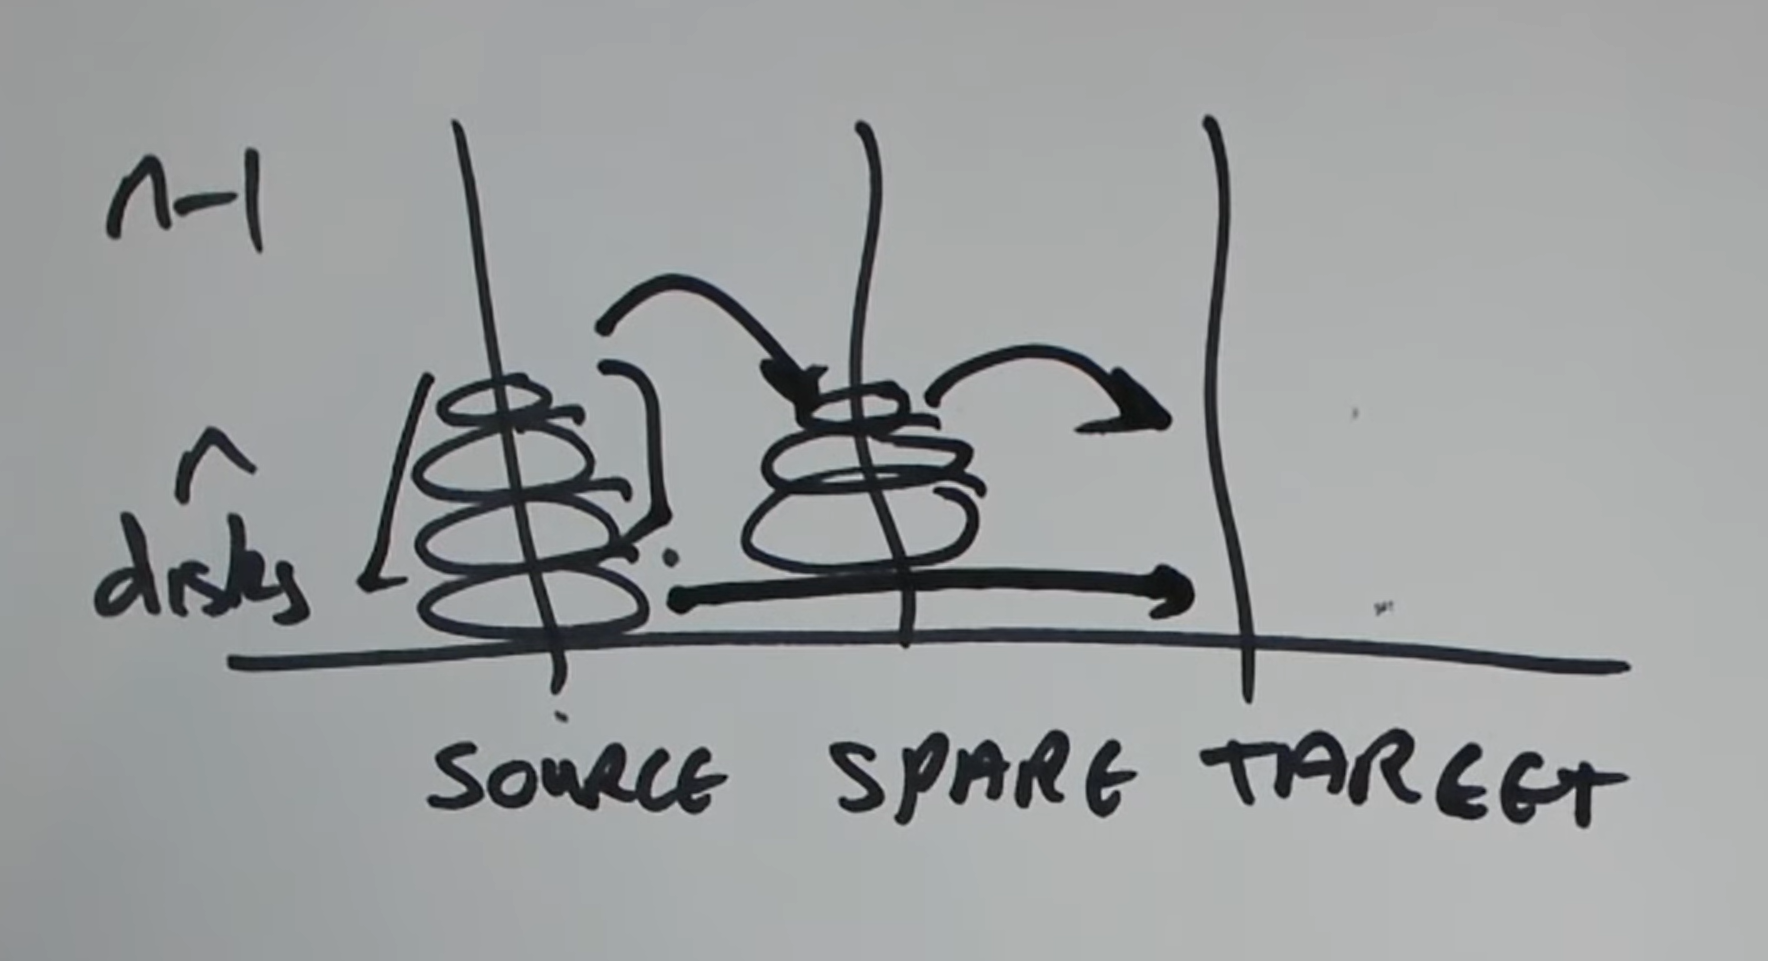 n-1
n
disks
SOURCE SPARE TARGET